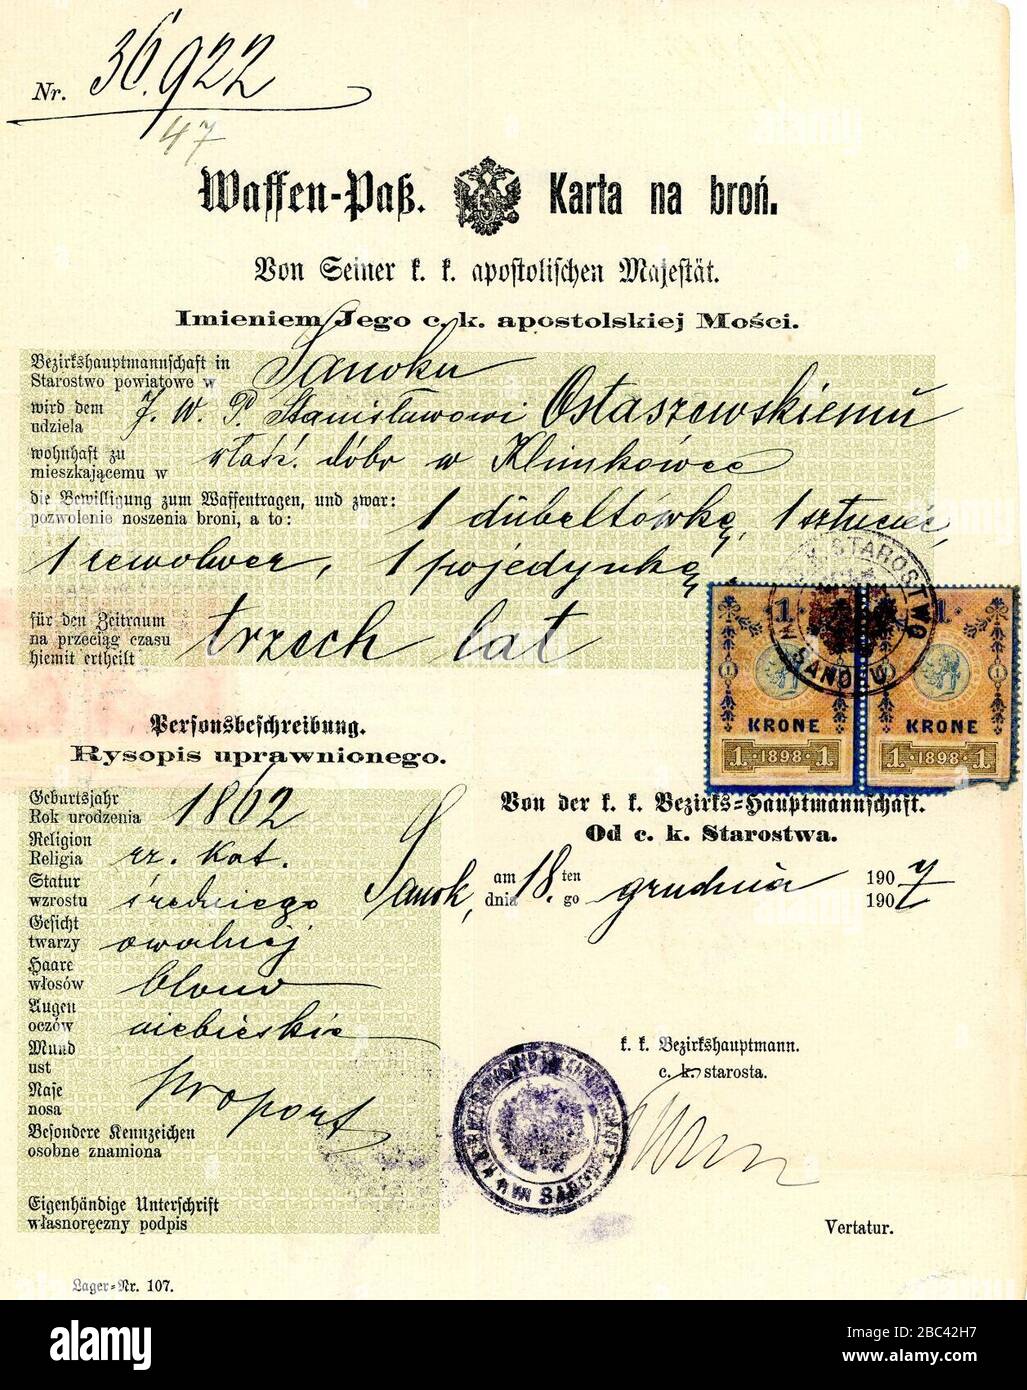 Nr. 36.922
47
Waffen-Paß. Karta na broń.
Von Seiner k. k. apostolischen Majestät.
Imieniem Jego c. k. apostolskiej Mości.
Bezirkshauptmannschaft in
Starostwo powiatowe w Sanoku
wird dem
udziela J. W. P. Stanisławowi Ostaszewskiemu
wohnhaft zu
mieszkającemu w właść. dóbr w Klimkówce
die Bewilligung zum Waffentragen, und zwar:
pozwolenie noszenia broni, a to: 1 dubeltówkę, 1 sztuciec,
1 rewolwer, 1 pojedynkę
für den Zeitraum
na przeciąg czasu trzech lat
hiemit ertheilt
STAROSTWO
SANOK
1 1
1 1
KRONE KRONE
1 1898 1 1 1898 1
Personsbeschreibung.
Rysopis uprawnionego.
Geburtsjahr
Rok urodzenia 1862
Religion
Religia rz. kat.
Statur
wzrostu średniego
Gesicht
twarzy owalnej
Haare
włosów blond
Augen
oczów niebieskie
Mund
ust
Nase
nosa proport
Besondere Kennzeichen
osobne znamiona
Eigenhändige Unterschrift
własnoręczny podpis
Von der k. k. Bezirks-Hauptmannschaft.
Od c. k. Starostwa.
Sanok, am dnia 18. ten go grudnia 1907
1907
k. k. Bezirkshauptmann.
c. k. starosta.
Vertatur.
Lager-Nr. 107.
alamy
Image ID: 2BC42H7
www.alamy.com